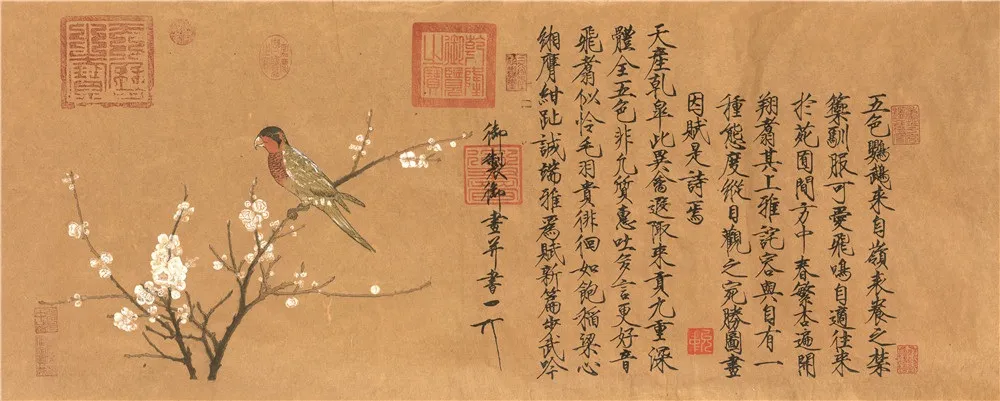 五色鸚鵡來自嶺表養之禁
籞馴服可愛飛鳴自適往來
於苑囿間方中春繁杏遍開
翔翥其上雅詫容與自有一
種態度縱目觀之宛勝圖畫
因賦是詩焉
天産乾皐此異禽遐陬來貢九重深
體全五色非凡質惠吐多言更好音
飛翥似憐毛羽貴徘徊如飽稻粱心
緗膺紺趾誠端雅爲賦新篇步武吟
御製御畫并書